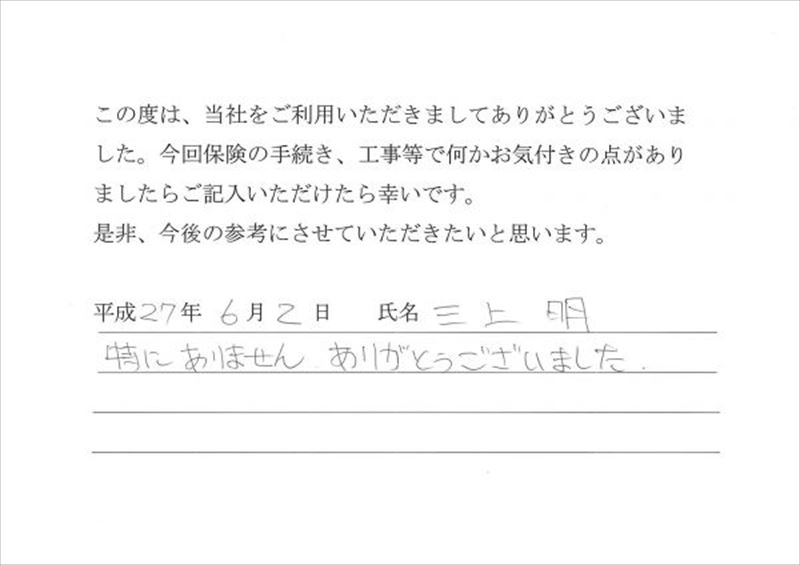 この度は、当社をご利用いただきましてありがとうございま
した。今回保険の手続き、工事等で何かお気付きの点があり
ましたらご記入いただけたら幸いです。
是非、今後の参考にさせていただきたいと思います。
平成27年 6月2日 氏名 三上 明
特にありません。ありがとうございました.